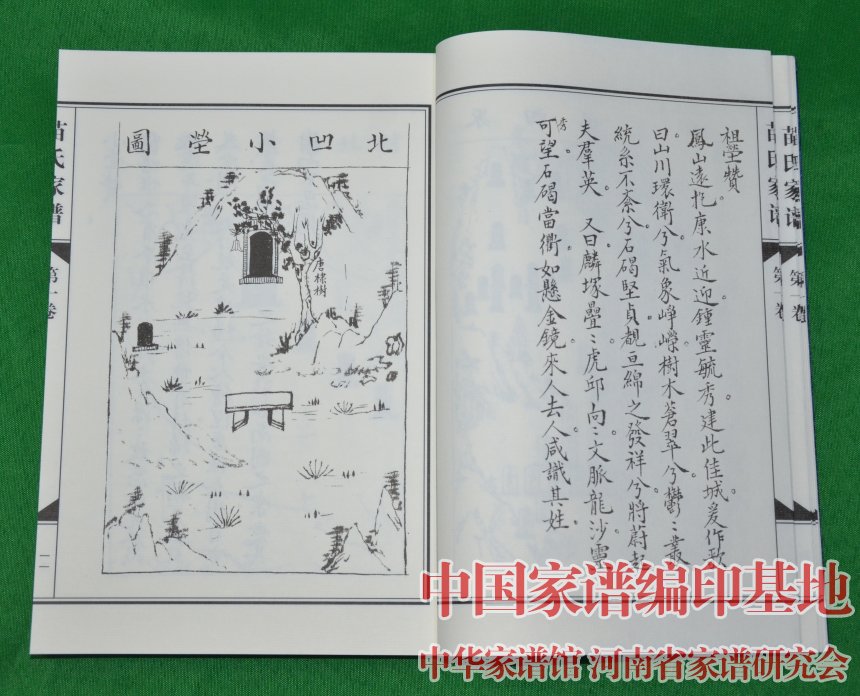 祖塋贊
鳳山遠抱康水近迎。鍾靈毓秀。建此佳城。爰作歌
曰山川環衛兮。氣象崢嶸。樹木蒼翠兮。鬱〻叢
統系不紊兮。石碣堅貞。覩亘綿之發祥兮。將蔚起
夫羣英。又曰麟塚疊〻。虎邱向〻。文脈龍沙。靈
秀
可望。石碣當衢。如懸金鏡。來人去人。咸識其姓。
苗氏家譜
第一卷
苗氏家譜
第一卷
北凹小塋圖
唐棣樹
苗氏家譜
第一卷
二
中国家谱编印基地
中华家谱馆 河南省家谱研究会